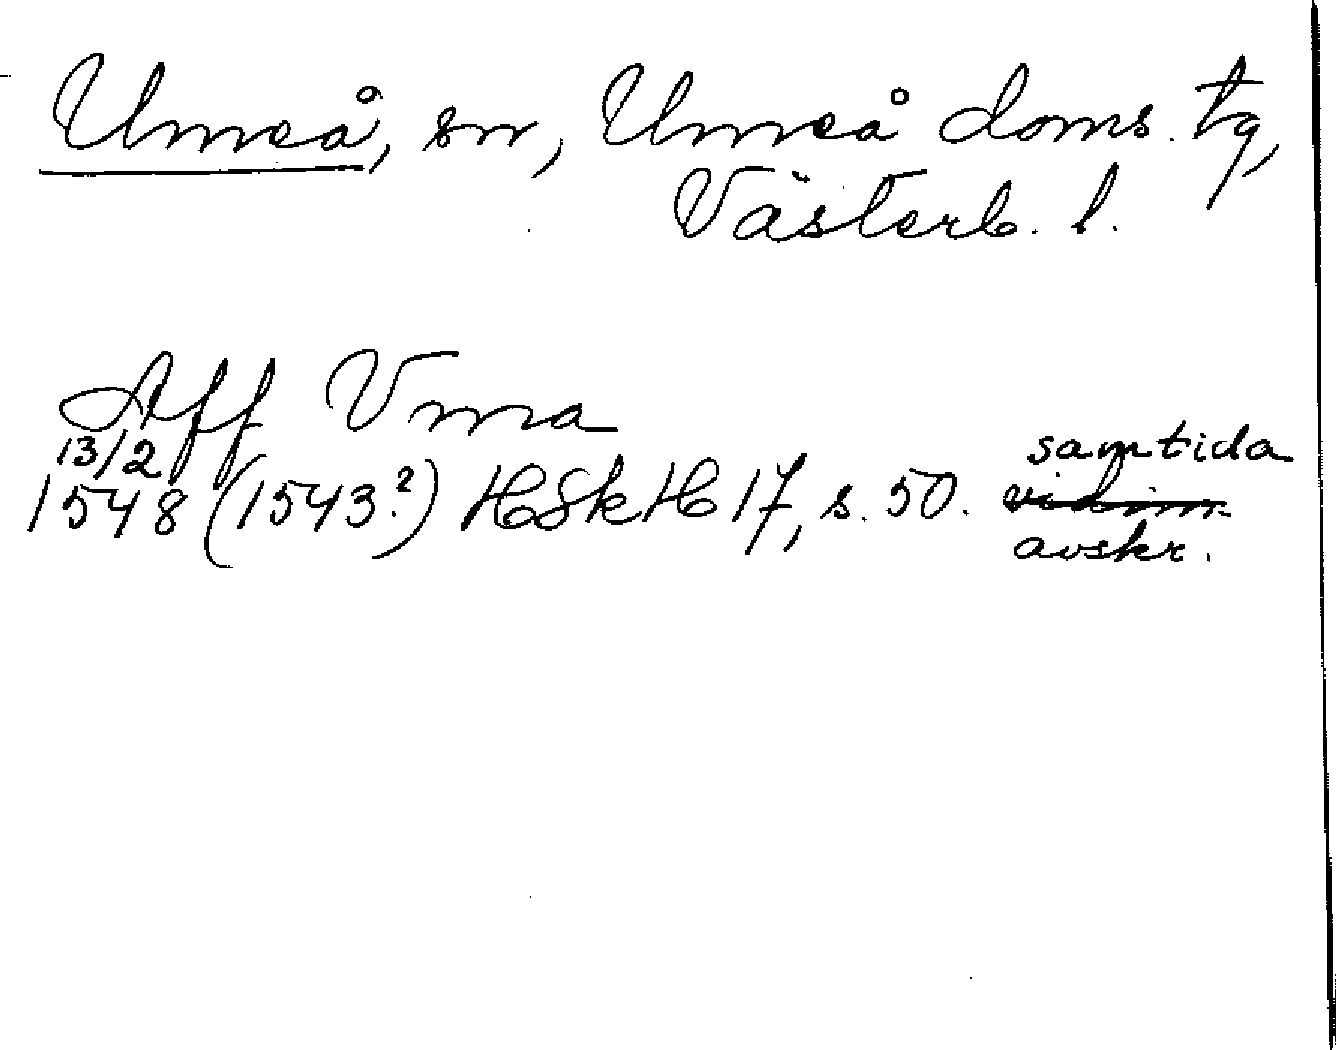 Umeå, sn, Umeå doms. tg,
Västerb. l.
Aff Vma
13/2
1548 (1543?) HSkH 17, s. 50. samtida
vidim.
avskr.